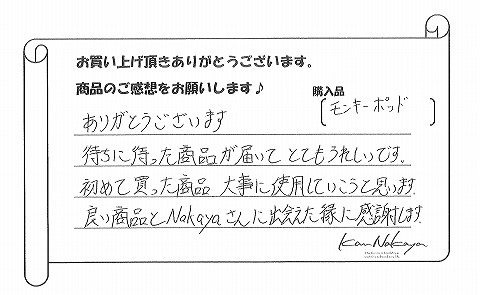 お買い上げ頂きありがとうございます。
商品のご感想をお願いします♪
購入品
[モンキーポッド]
ありがとうございます
待ちに待った商品が届いて とてもうれしいです。
初めて買った商品 大事に使用していこうと思います
良い商品とNakayaさんに出会えた縁に感謝します
Kan Nakaya